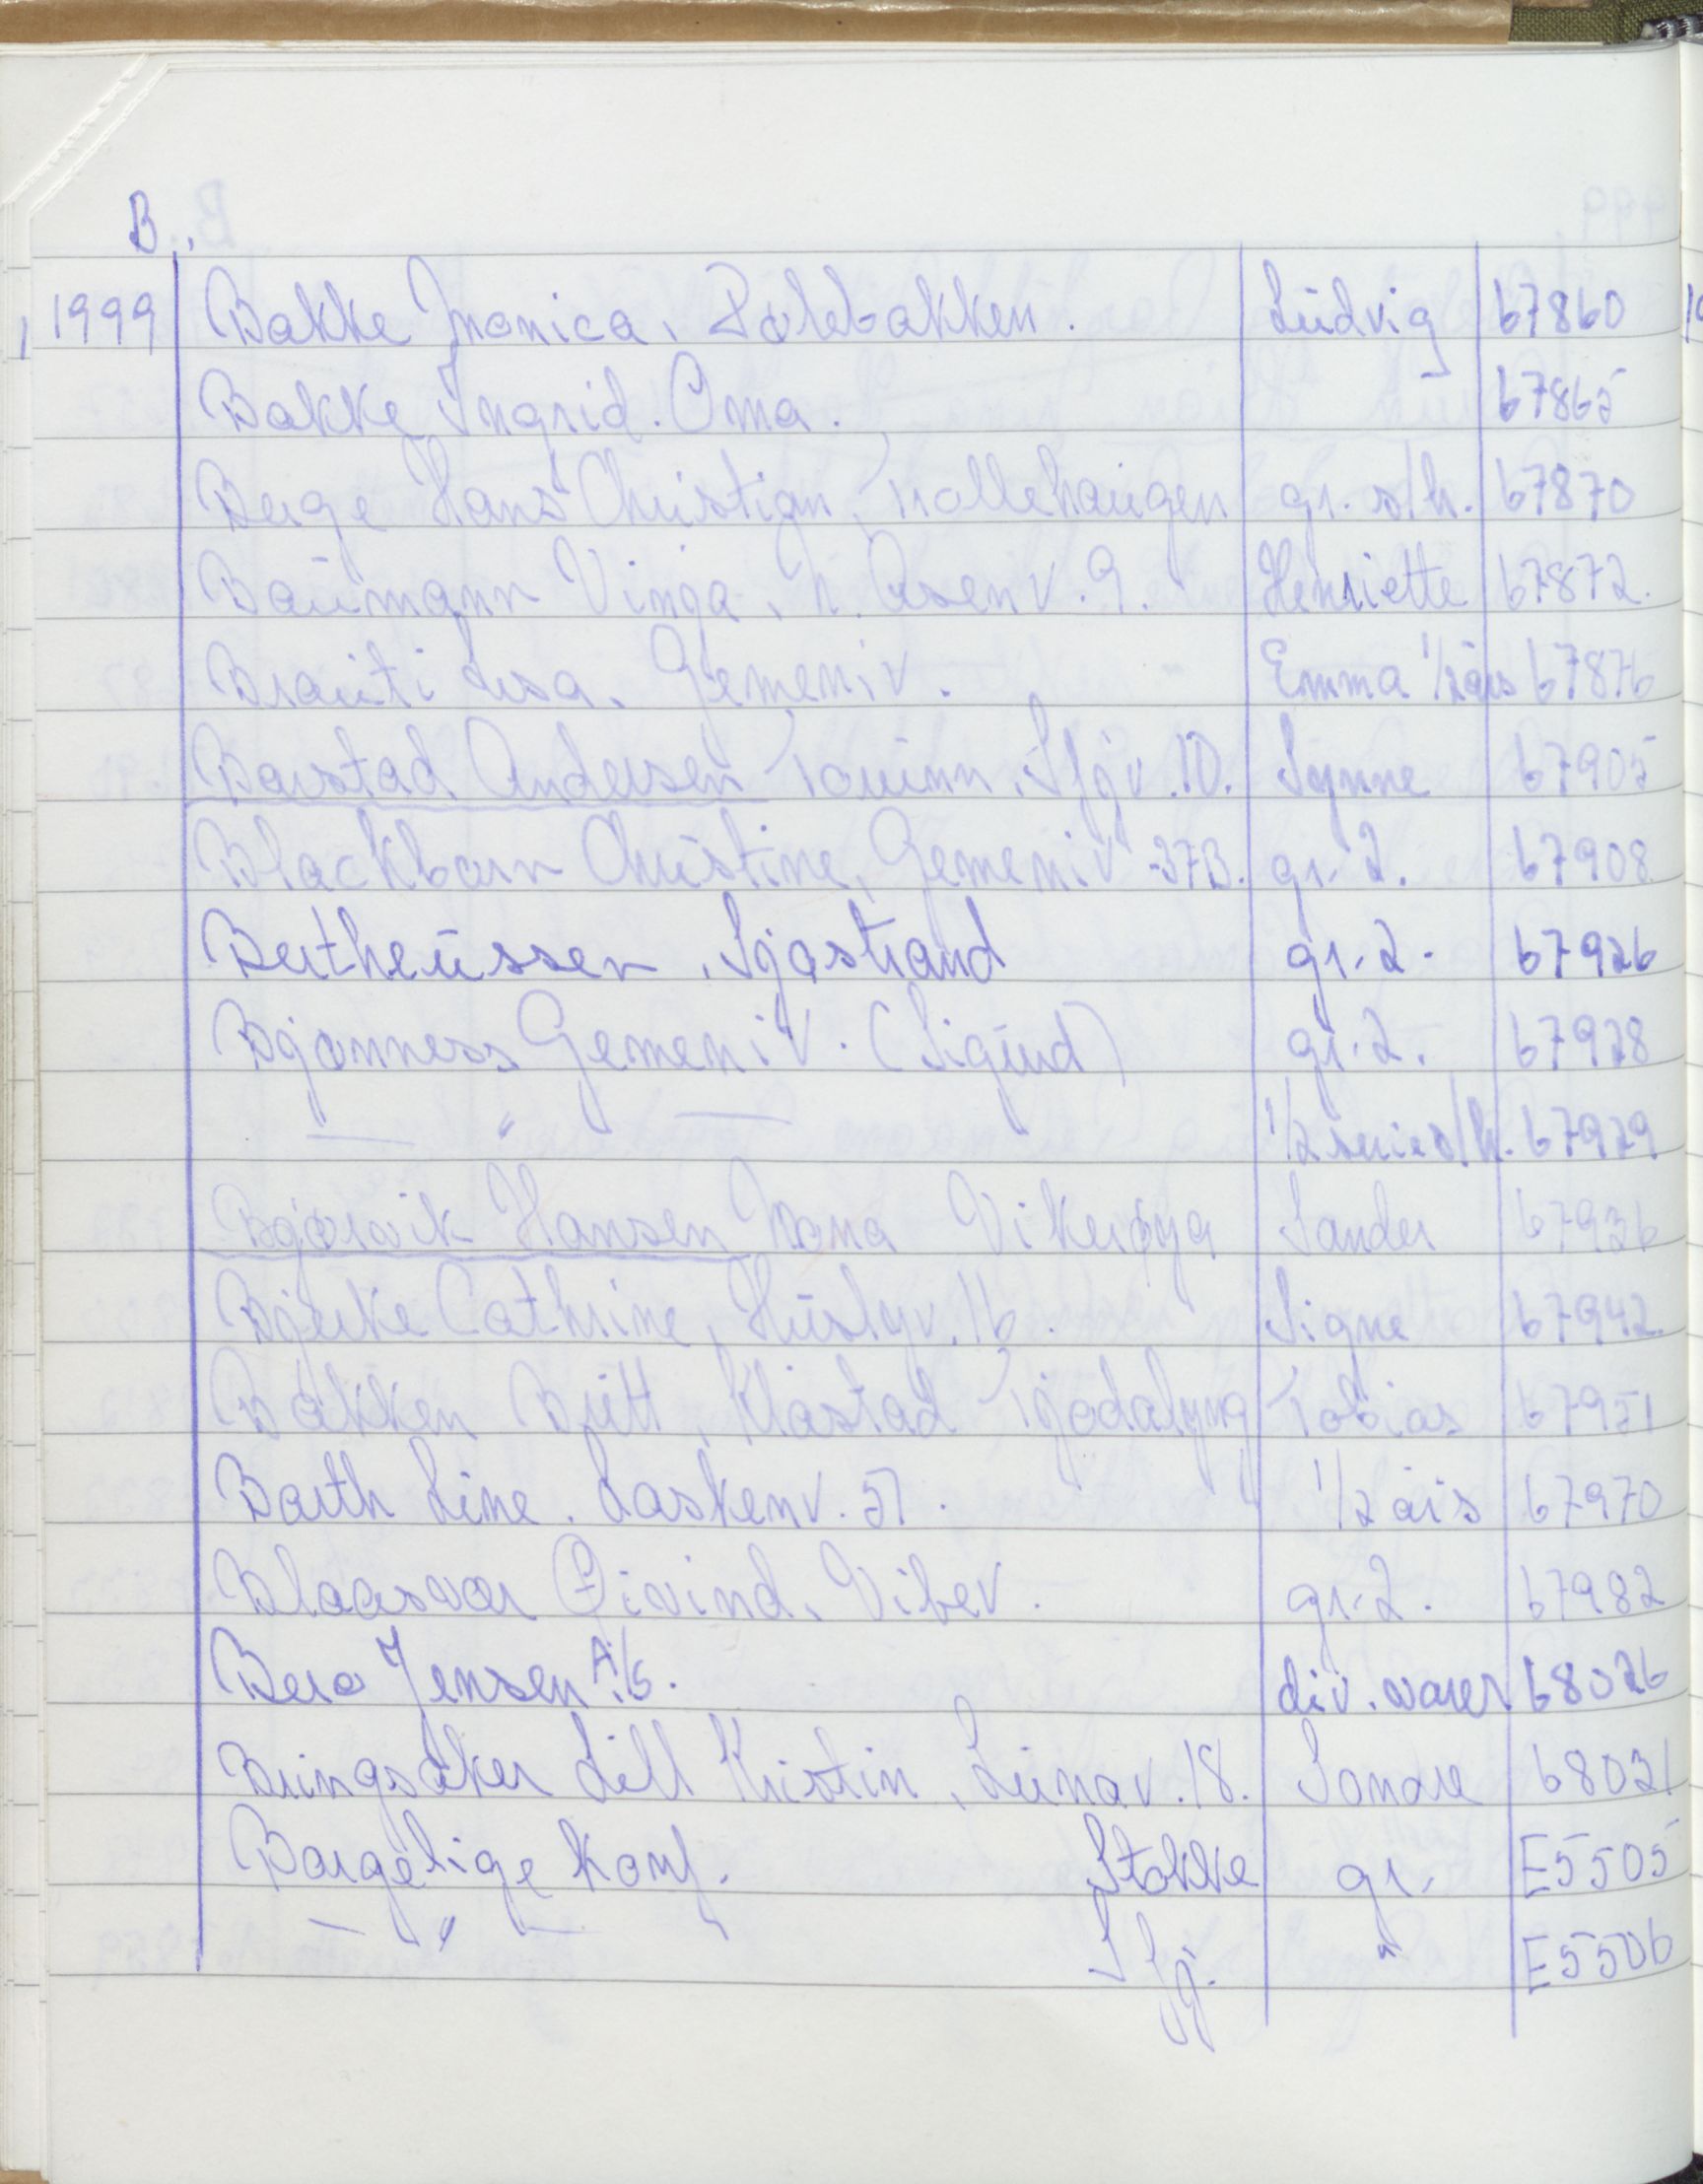 B.
1999 Bakke Monica, Pølebakken. Ludvig 67860
Bakke Ingrid. Oma. 67865
Berge Hans Christian, Trollehaugen gr. s/h. 67870
Baumann Vinga, N. Åsenv. 9. Henriette 67872.
Brauti Lisa, Gemeniv. Emma 1/2års 67876
Barstad Andersen Tourinn, Sfjv. 10. Synne 67905
Blackborn Christine, Gemeniv 37B. gr. 2. 67908
Bertheussen, Sjøstrand gr. 2. 67926
Bjønness Gemeniv. (Sigurd) gr. 2. 67928
— " — 1/2 serie s/h. 67929
Bjørvik Hansen Mona Vikerøya Sander 67936
Bjerke Cathrine, Huslyv. 16. Signe 67942
Bakken Britt, Klåstad Tjødalyng Tobias 67951
Barth Line. Laskenv. 57. 1/2 års 67970
Blaasvær Øivind, Vibev. gr. 2. 67982
Bera Jensen A/S. div. varer 68026
Bringsåker Lill Kristin, Lunav. 18. Sondre 68031
Borgelige Konf. Stokke gr. E5505
— " — Sfj. " E5506